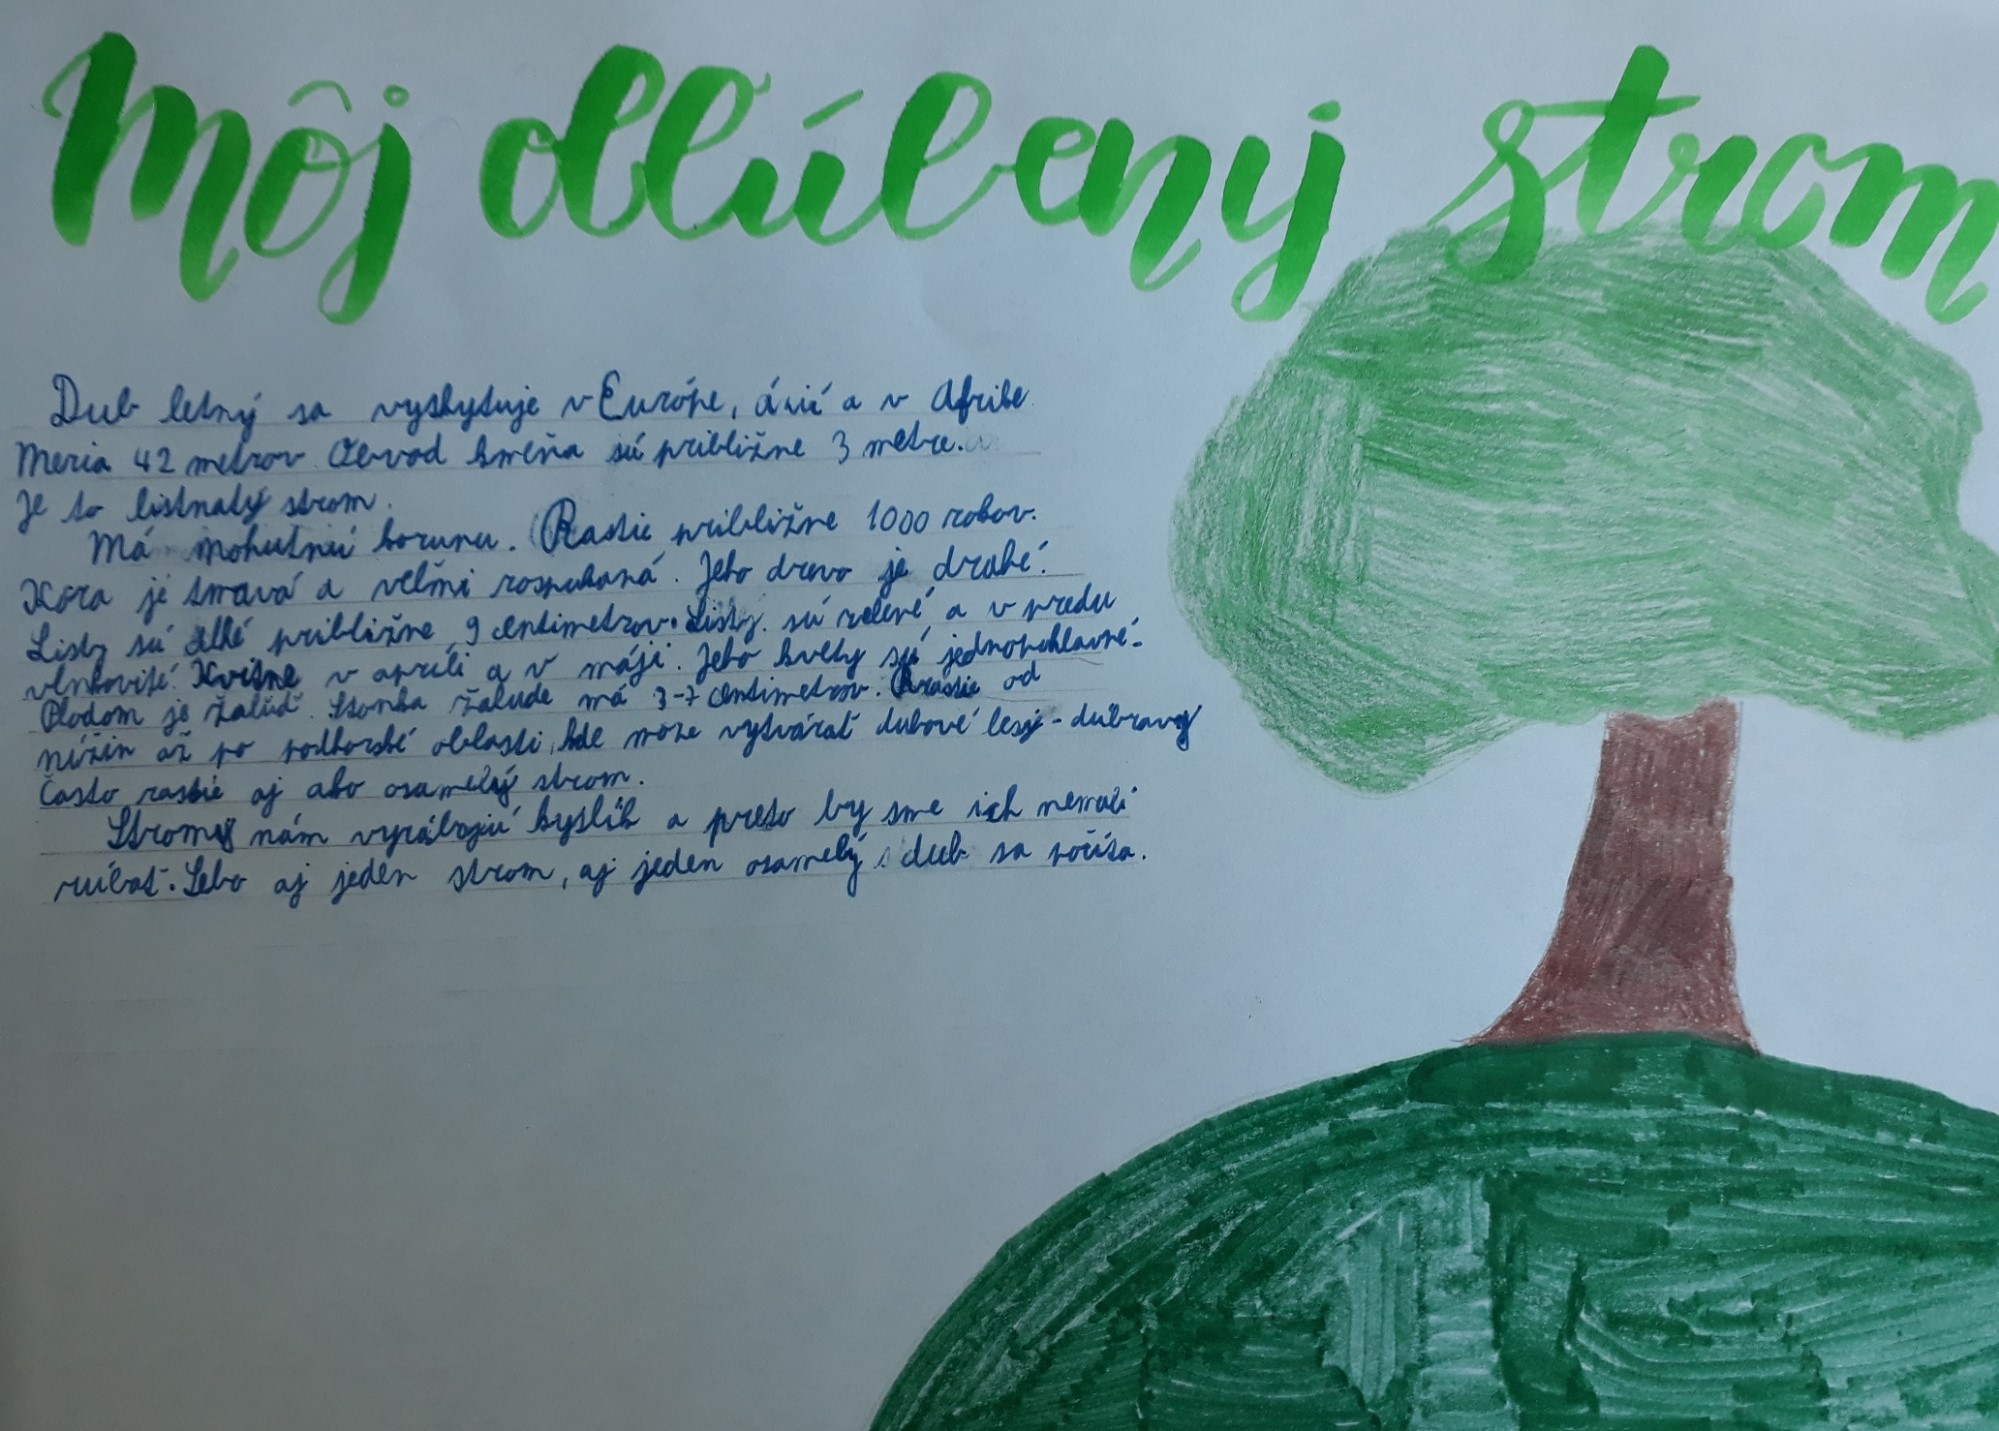 Môj obľúbený strom
Dub letný sa vyskytuje v Európe, ázií a v Afrike.
Meria 42 metrov. Obvod kmeňa sú približne 3 metre.
Je to listnatý strom.
Má mohutnú korunu. Rastie približne 1000 rokov.
Kôra je tmavá a veľmi rozpukaná. Jeho drevo je drahé.
Listy sú dlhé približne 9 centimetrov. Listy sú zelené a v predu
vlnkovité. Kvitne v apríli a v máji. Jeho kvety sú jednopohlavné.
Plodom je žaluď. Stonka žalude má 3-7 centimetrov. Rastie od
nížin až po podhorské oblasti, kde može vytvárať dubové lesy - dúbravy
Často rastie aj ako osamelý strom.
Stromy nám vyrábajú kyslík a preto by sme ich nemali
rúbať. Lebo aj jeden strom, aj jeden osamelý dub sa počíta.